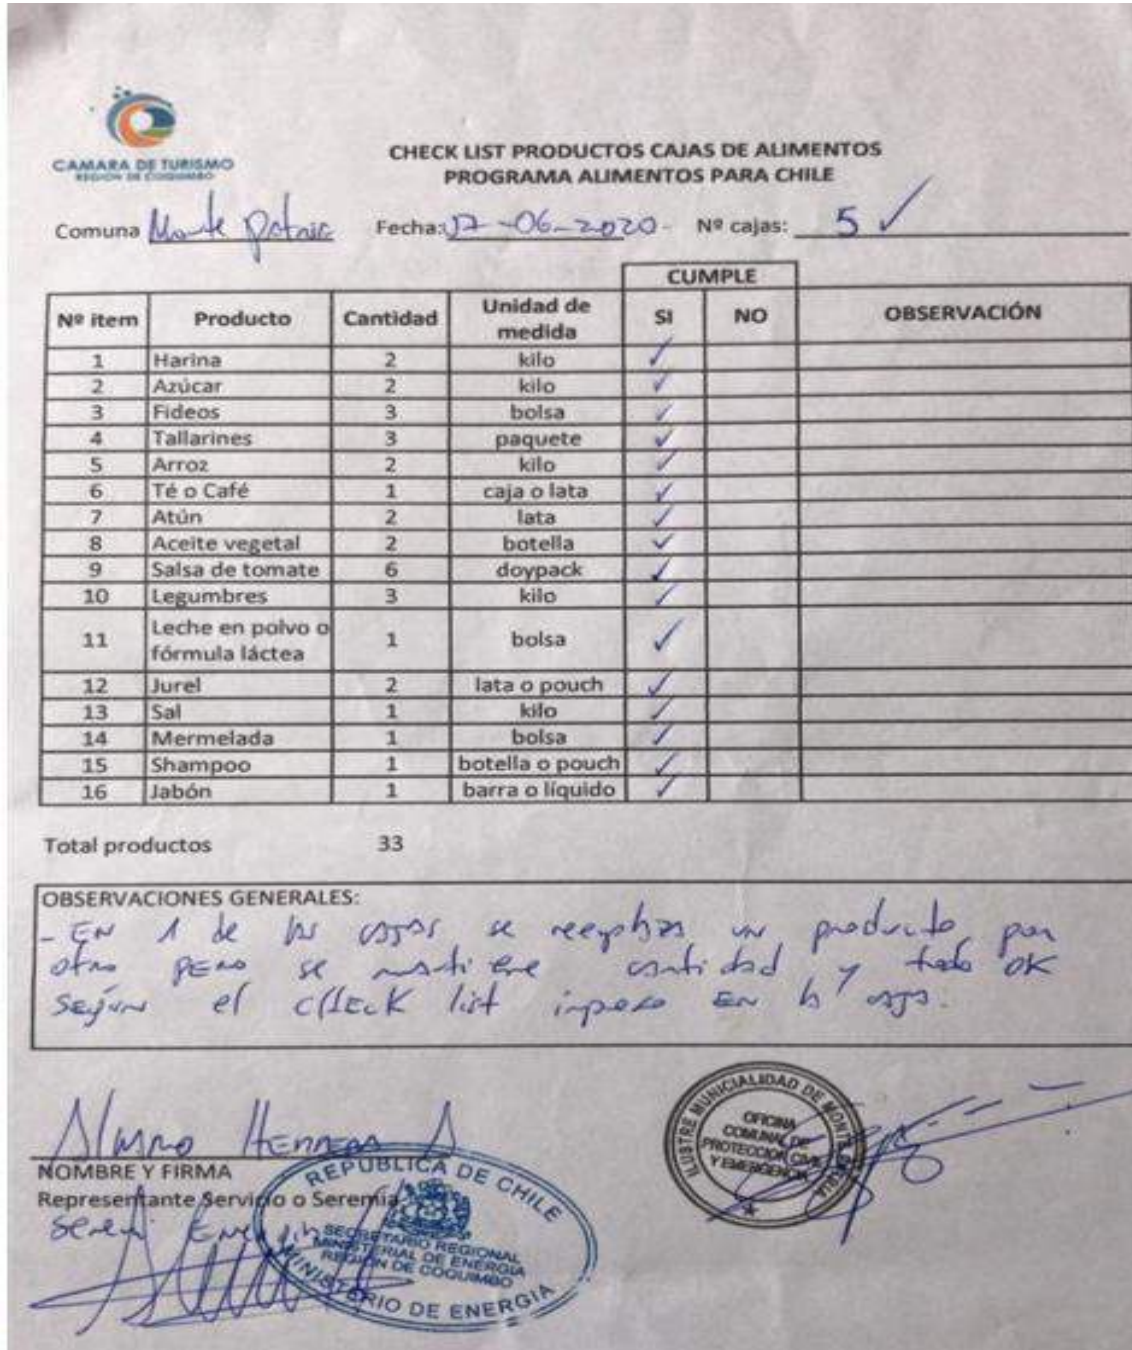 CAMARA DE TURISMO
REGIÓN DE COQUIMBO
CHECK LIST PRODUCTOS CAJAS DE ALIMENTOS
PROGRAMA ALIMENTOS PARA CHILE
Comuna Monte Patria Fecha: 17-06-2020- Nº cajas: 5 ✓
CUMPLE
Nº item Producto Cantidad Unidad de medida SI NO OBSERVACIÓN
1 Harina 2 kilo ✓
2 Azúcar 2 kilo ✓
3 Fideos 3 bolsa ✓
4 Tallarines 3 paquete ✓
5 Arroz 2 kilo ✓
6 Té o Café 1 caja o lata ✓
7 Atún 2 lata ✓
8 Aceite vegetal 2 botella ✓
9 Salsa de tomate 6 doypack ✓
10 Legumbres 3 kilo ✓
11 Leche en polvo o fórmula láctea 1 bolsa ✓
12 Jurel 2 lata o pouch ✓
13 Sal 1 kilo ✓
14 Mermelada 1 bolsa ✓
15 Shampoo 1 botella o pouch ✓
16 Jabón 1 barra o líquido ✓
Total productos 33
OBSERVACIONES GENERALES:
- EN 1 de las cajas se reemplaza un producto por
otro pero se mantiene cantidad y todo OK
según el cHEcK list impreso EN la caja.
Alvaro Herrera
NOMBRE Y FIRMA
Representante Servicio o Seremía
Seremi Energía
REPUBLICA DE CHILE
SECRETARIO REGIONAL
MINISTERIAL DE ENERGIA
REGION DE COQUIMBO
MINISTERIO DE ENERGIA
ILUSTRE MUNICIPALIDAD DE MONTE PATRIA
OFICINA
COMUNAL DE
PROTECCION CIVIL
Y EMERGENCIA